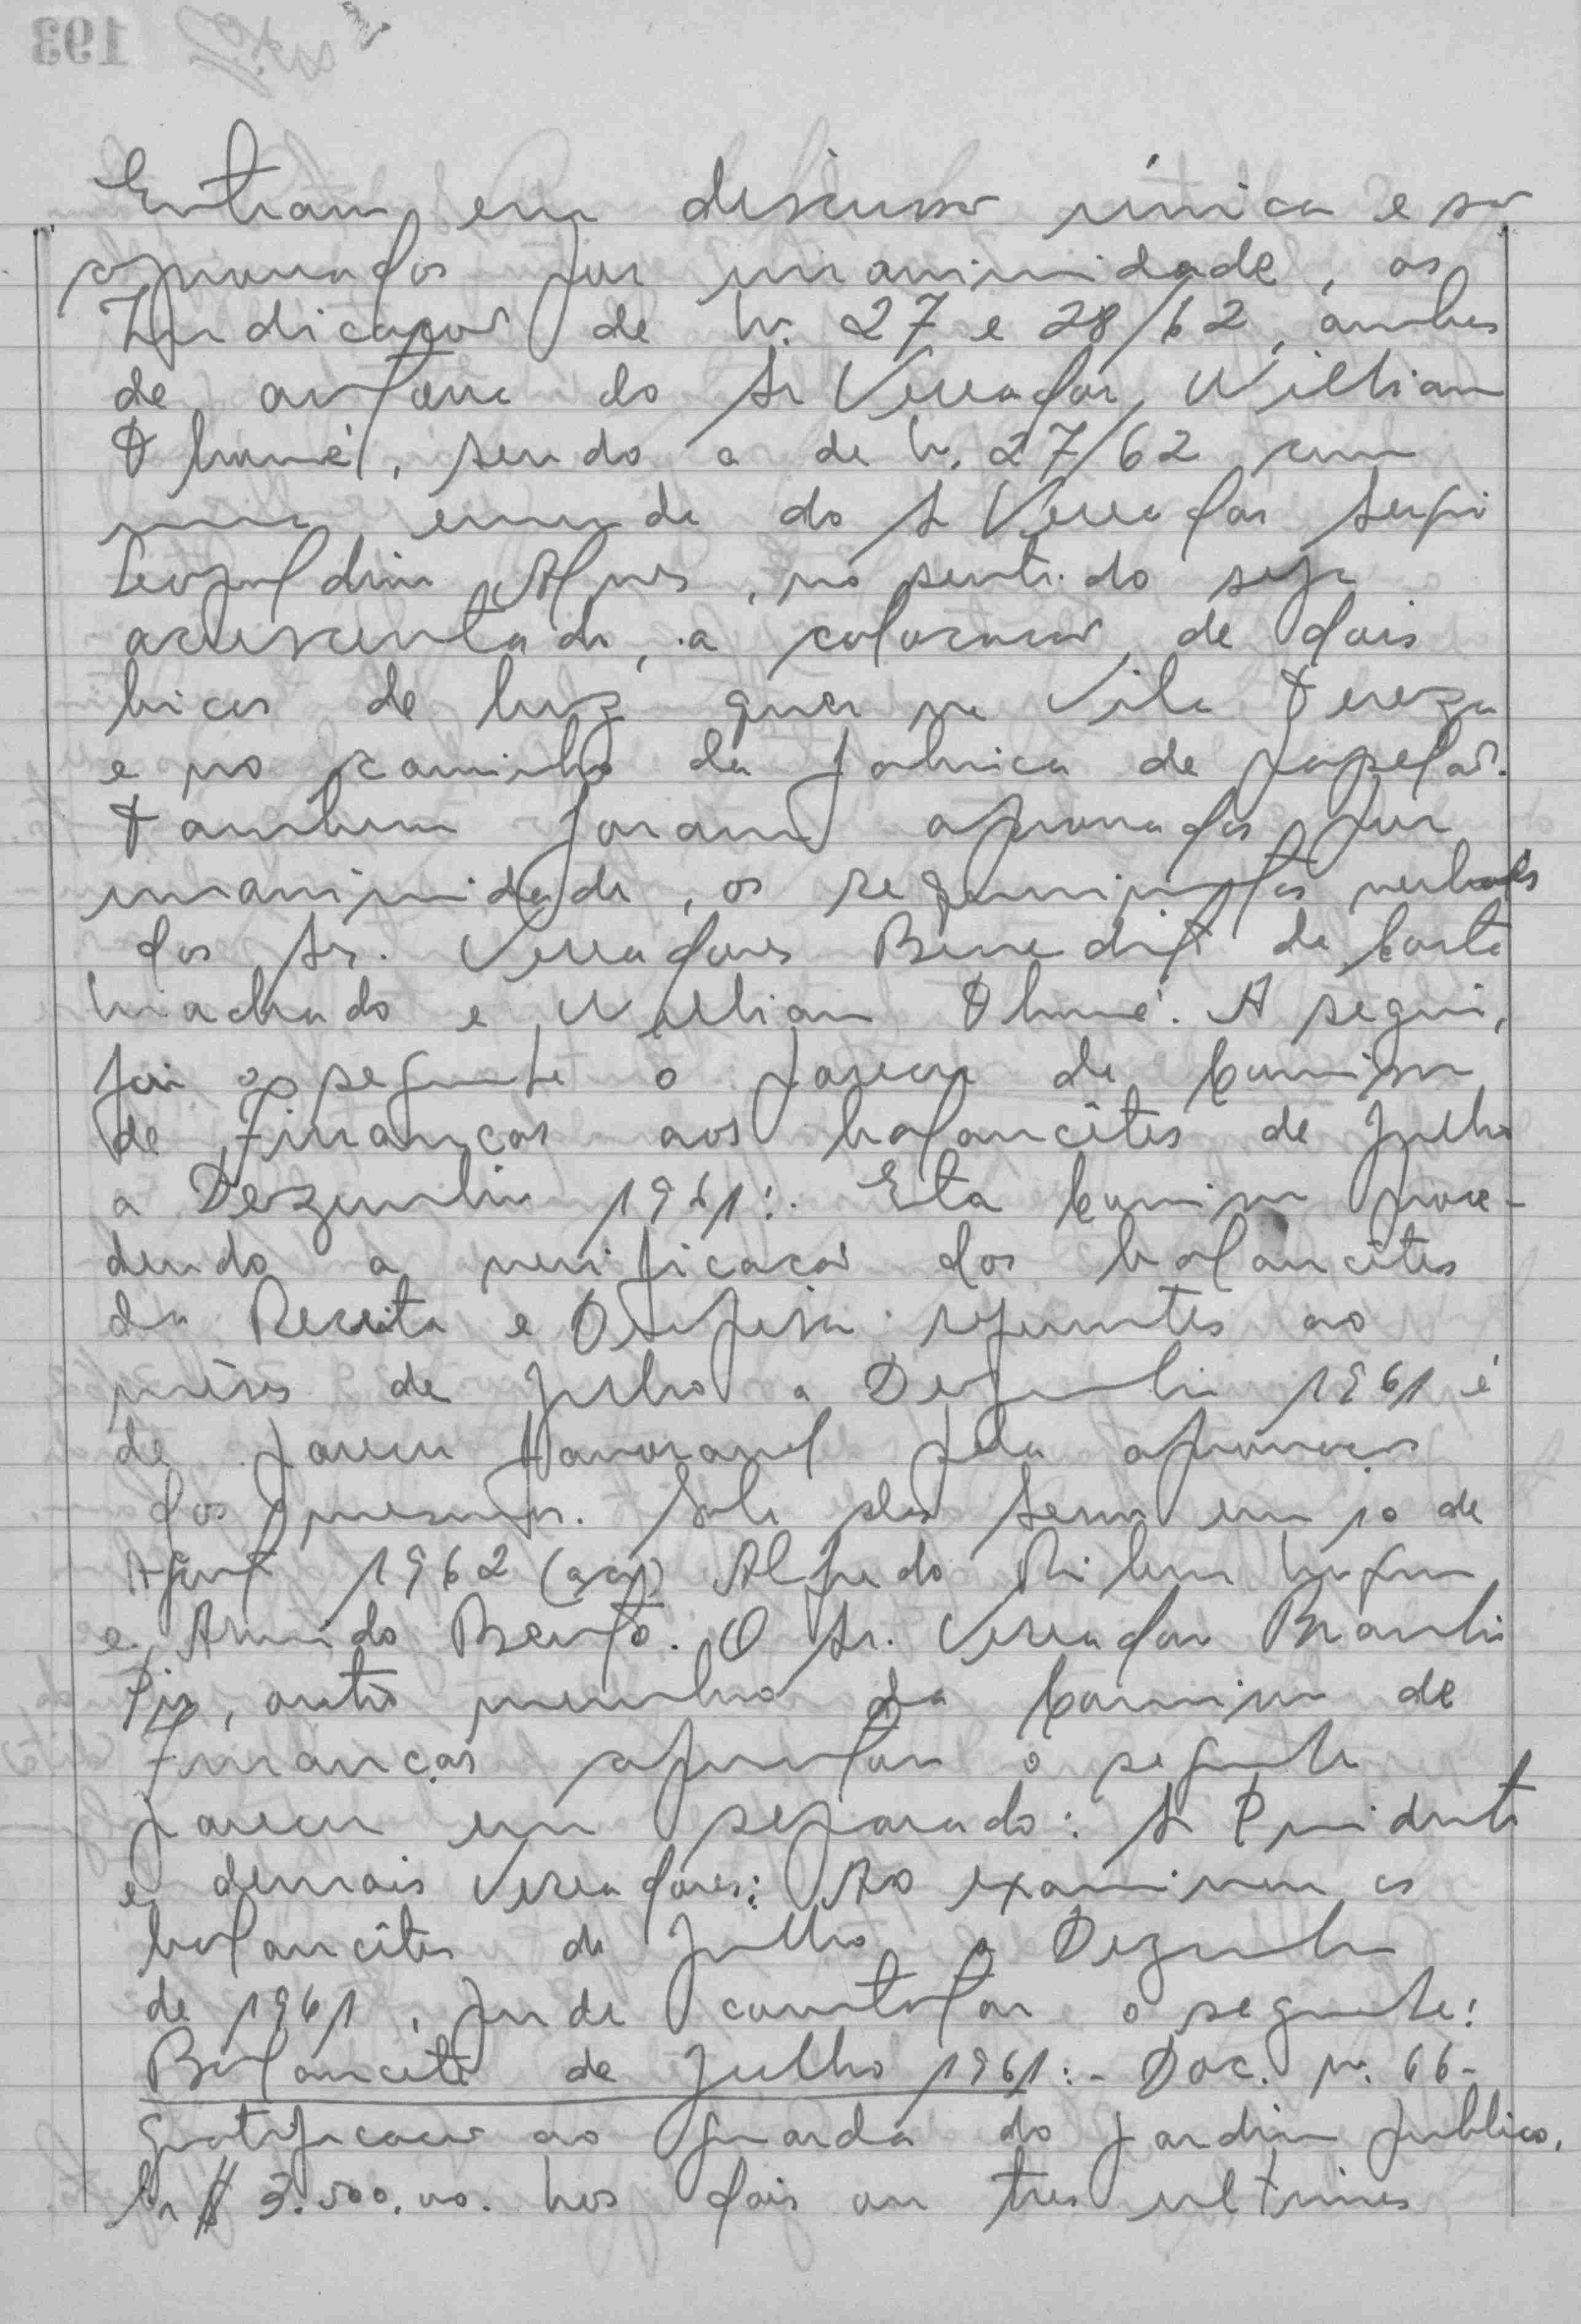 Entram em discussão única e são
aprovados por unanimidade, as
Indicações de N. 27 e 28/62, ambas
de autoria do Sr Vereador Willian
Thomé, sendo a de N. 27/62 com
uma emenda do Sr Vereador Sergio
Leopoldino Alves, no sentido seja
acrescentado, a colocação de dois
bicos de luz quer na Vila Tereza
e no caminho da fabrica de papelão.
Tambem foram aprovados por
unanimidade, os requerimentos verbaes
dos Sr. Vereadores Benedito da Costa
Machado e Willian Thomé. A seguir,
foi o seguinte o parecer da Comissão
de Finanças aos balancêtes de Julho
a Dezembro 1961:. Esta Comissão proce-
dendo a verificação dos balancêtes
da Receita e Despesa referentes ao
mêses de Julho a Dezembro 1961 é
de parecer favoravel pela aprovação
dos mesmos. Sala das Sessões em 10 de
Agosto 1962 (aa) Alfredo
e Armindo Bento. O Sr. Vereador Braulio
Pio, outro membro da Comissão de
Finanças apresentou o seguinte
parecer em separado: Sr Presidente
e demais Vereadores: Ao examinar os
balancêtes de Julho a Dezembro
de 1961, pude constatar o seguinte:
Balancete de Julho 1961:- Doc. n. 66-
gratificação ao guarda do jardim publico,
Cr$ 3.500,00. Nos dois ou tres ultimos